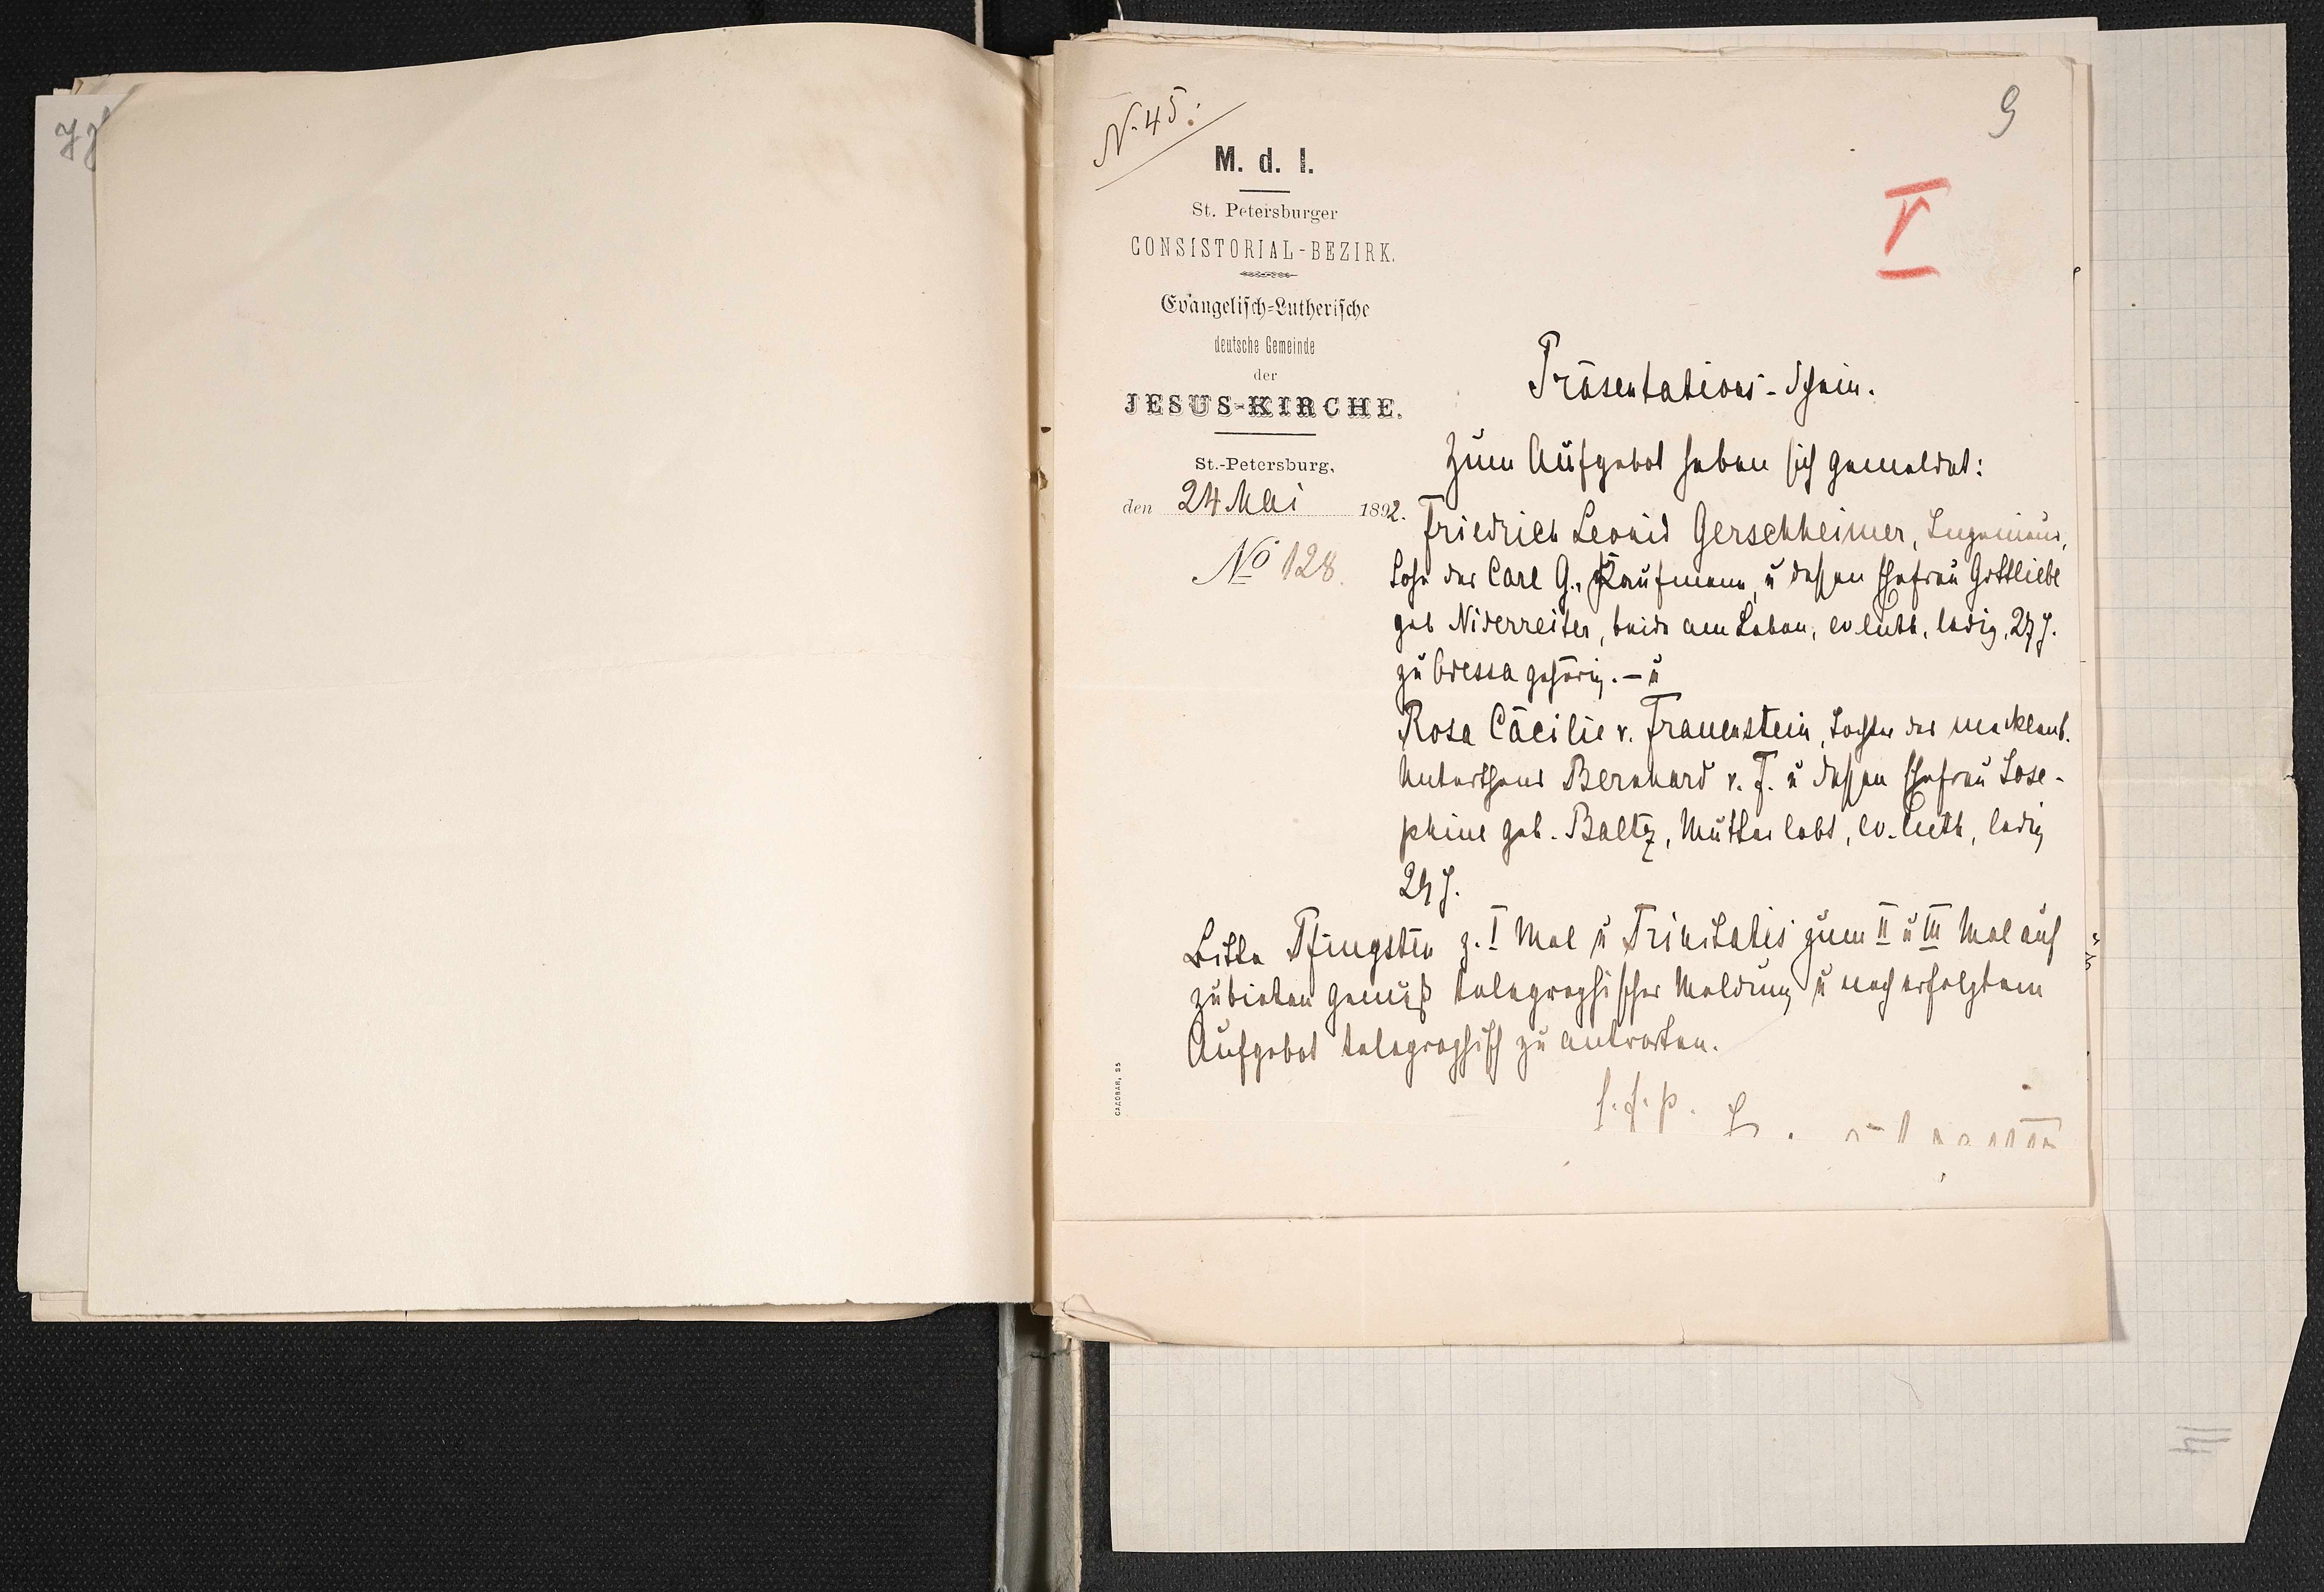 N. 45.
9
M. d. I.
St. Petersburger
CONSISTORIAL-BEZIRK.
Evangelisch-Lutherische
deutsche Gemeinde
der
JESUS-KIRCHE.
St.-Petersburg,
den 24 Mai 1892.
No 128.
Präsentations-Schein.
Zum Aufgebot haben sich gemeldet:
Friedrich Leonid Gerschheimer, Ingenieur,
Sohn des Carl G., Kaufmann, u dessen Ehefrau Gottliebe
geb Niderreiter, beide am Leben, ev luth, ledig, 27 J.
zu Odessa gehörig. – u
Rosa Cäcilie v. Frauenstein, Tochter des mecklenb.
Unterthans Bernhard v. F. u dessen Ehefrau Jose-
phine geb. Baltz, Mutter lebt, ev. luth, ledig
J.
Bitte Pfingsten z. I Mal u Trinitatis zum II u III Mal auf
zubieten gemäß telegraphischer Meldung u nach erfolgtem
Aufgebot telegraphisch zu antworten.
САДОВАЯ, 25